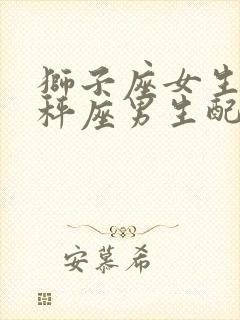 獅子座女生
秤座男生配
安慕希